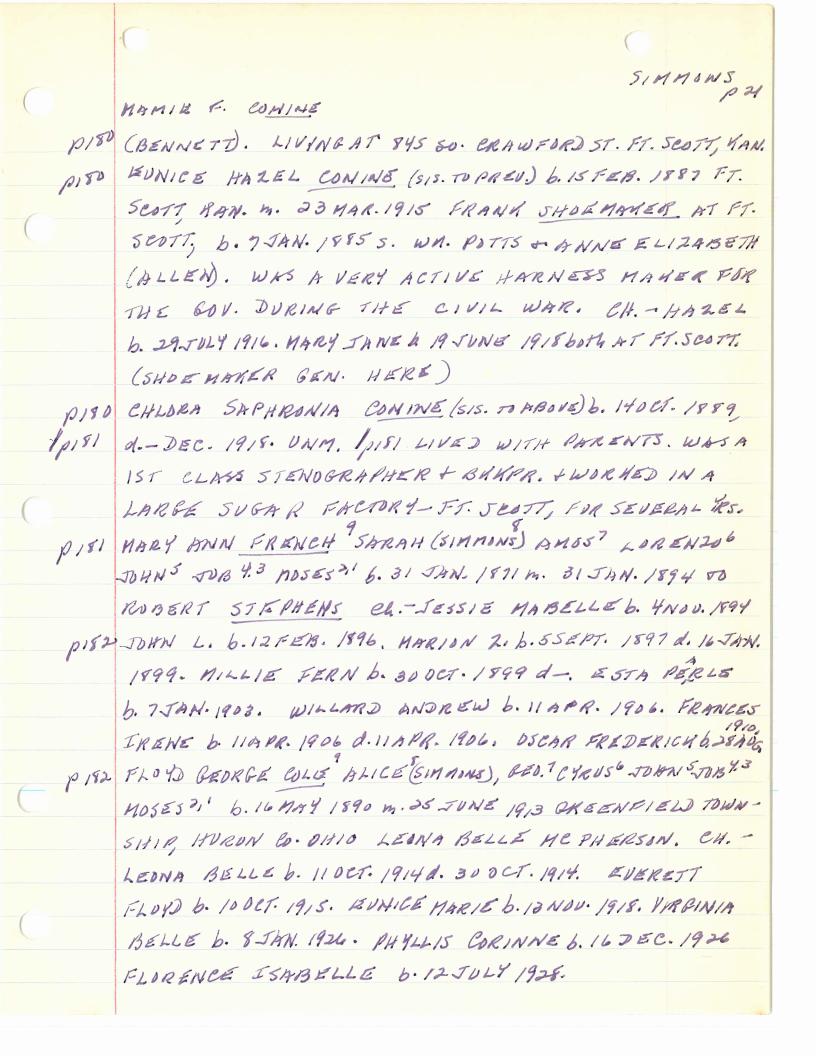 SIMMONS
p 21
MAMIE F. COMINE
p180 (BENNETT). LIVING AT 845 SO. CRAWFORD ST. FT. SCOTT, KAN.
p180 EUNICE HAZEL COMINE (SIS. TO PREV.) b. 15 FEB. 1887 FT.
SCOTT, KAN. m. 23 MAR. 1915 FRANK SHOEMAKER AT FT.
SCOTT, b. 7 JAN. 1885 s. WM. POTTS & ANNE ELIZABETH
(ALLEN). WAS A VERY ACTIVE HARNESS MAKER FOR
THE GOV. DURING THE CIVIL WAR. CH. - HAZEL
b. 29 JULY 1916. MARY JANE b 19 JUNE 1918 both AT FT. SCOTT.
(SHOEMAKER GEN. HERE)
p180 CHLORA SAPHRONIA COMINE (SIS. TO ABOVE) b. 1 OCT. 1889,
/p181 d. - DEC. 1918. UNM. /p181 LIVED WITH PARENTS. WAS A
1ST CLASS STENOGRAPHER & BKKPR. & WORKED IN A
LARGE SUGAR FACTORY - FT. SCOTT, FOR SEVERAL YRS.
p181 MARY ANN FRENCH⁹ SARAH⁸ (SIMMONS) AMOS⁷ LORENZO⁶
JOHN⁵ JOB⁴·³ MOSES²,¹ b. 31 JAN. 1871 m. 31 JAN. 1894 TO
ROBERT STEPHENS Ch. - JESSIE MABELLE b. 4 NOV. 1894
p182 JOHN L. b. 12 FEB. 1896. MARION Z. b. 5 SEPT. 1897 d. 16 JAN.
1899. MILLIE FERN b. 30 OCT. 1899 d -. ESTA PEARLE
b. 7 JAN. 1903. WILLARD ANDREW b. 11 APR. 1906. FRANCES
IRENE b. 11 APR. 1906 d. 11 APR. 1906. OSCAR FREDERICK b. 28 AUG. 1910.
p182 FLOYD GEORGE COLE⁹ ALICE⁸ (SIMMONS), GEO.⁷ CYRUS⁶ JOHN⁵ JOB⁴·³
MOSES²,¹ b. 16 MAY 1890 m. 25 JUNE 1913 GREENFIELD TOWN-
SHIP, HURON CO. OHIO LEONA BELLE MC PHERSON. CH. -
LEONA BELLE b. 11 OCT. 1914 d. 30 OCT. 1914. EVERETT
FLOYD b. 10 OCT. 1915. EUNICE MARIE b. 12 NOV. 1918. VIRGINIA
BELLE b. 8 JAN. 1926. PHYLLIS CORINNE b. 16 DEC. 1926
FLORENCE ISABELLE b. 12 JULY 1928.